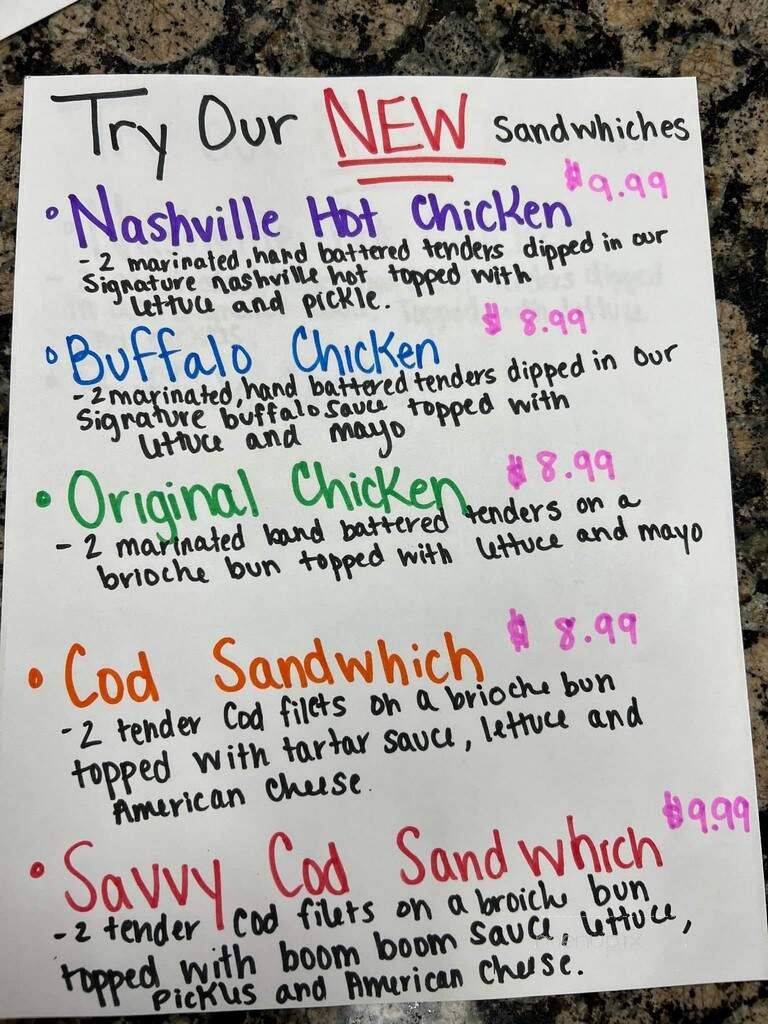 Try Our NEW Sandwhiches
$9.99
• Nashville Hot Chicken
- 2 marinated, hand battered tenders dipped in our
Signature nashville hot topped with
lettuce and pickle.
$ 8.99
• Buffalo Chicken
- 2 marinated, hand battered tenders dipped in our
Signature buffalo sauce topped with
lettuce and mayo
$ 8.99
• Original Chicken
- 2 marinated hand battered tenders on a
brioche bun topped with lettuce and mayo
$ 8.99
• Cod Sandwhich
- 2 tender Cod filets on a brioche bun
topped with tartar sauce, lettuce and
American cheese.
$9.99
• Savvy Cod Sandwhich
- 2 tender cod filets on a broiche bun
topped with boom boom sauce, lettuce,
Pickles and American cheese.